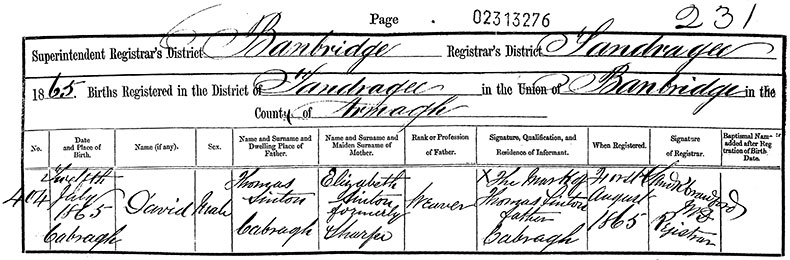 Page . 02313276 231
Superintendent Registrar's District Banbridge Registrar's District Tandragee
1865. Births Registered in the District of Tandragee in the Union of Banbridge in the
County of Armagh
No. Date and Place of Birth. Name (if any). Sex. Name and Surname and Dwelling Place of Father. Name and Surname and Maiden Surname of Mother. Rank or Profession of Father. Signature, Qualification, and Residence of Informant. When Registered. Signature of Registrar. Baptismal Name added after Reg tration of Birth Date.
404
Twelfth
July
1865
Cabragh
David
Male
Thomas
Sinton
Cabragh
Elizabeth
Sinton
formerly
Sharpe
Weaver
X The Mark of
Thomas Sinton
father
Cabragh
First
August
1865
Crawford
Registrar